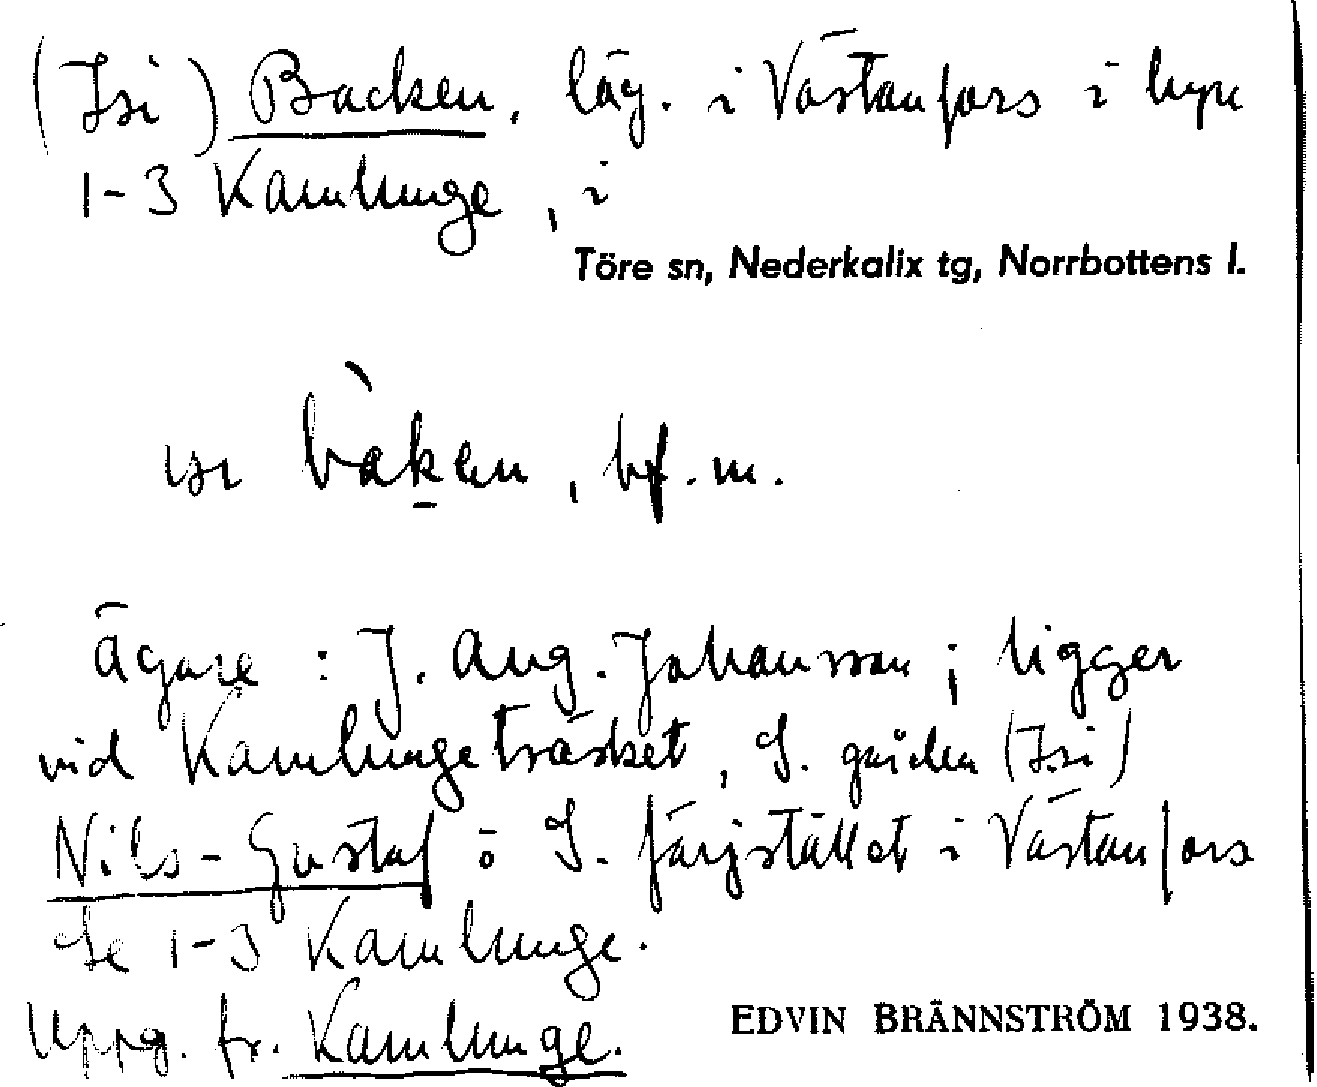 (Isi) Backen, läg. i Västanfors i byn
1-3 Kamlunge, i
Töre sn, Nederkalix tg, Norrbottens l.
ɩsɩ bàk̠en, bf. m.
Ägare : J. Aug. Johansson ; ligger
vid Kamlungeträsket, S. gården (Isi)
Nils-Gustaf o S. färjstället i Västanfors
Se 1-3 Kamlunge.
Uppg. fr. Kamlunge.
EDVIN BRÄNNSTRÖM 1938.